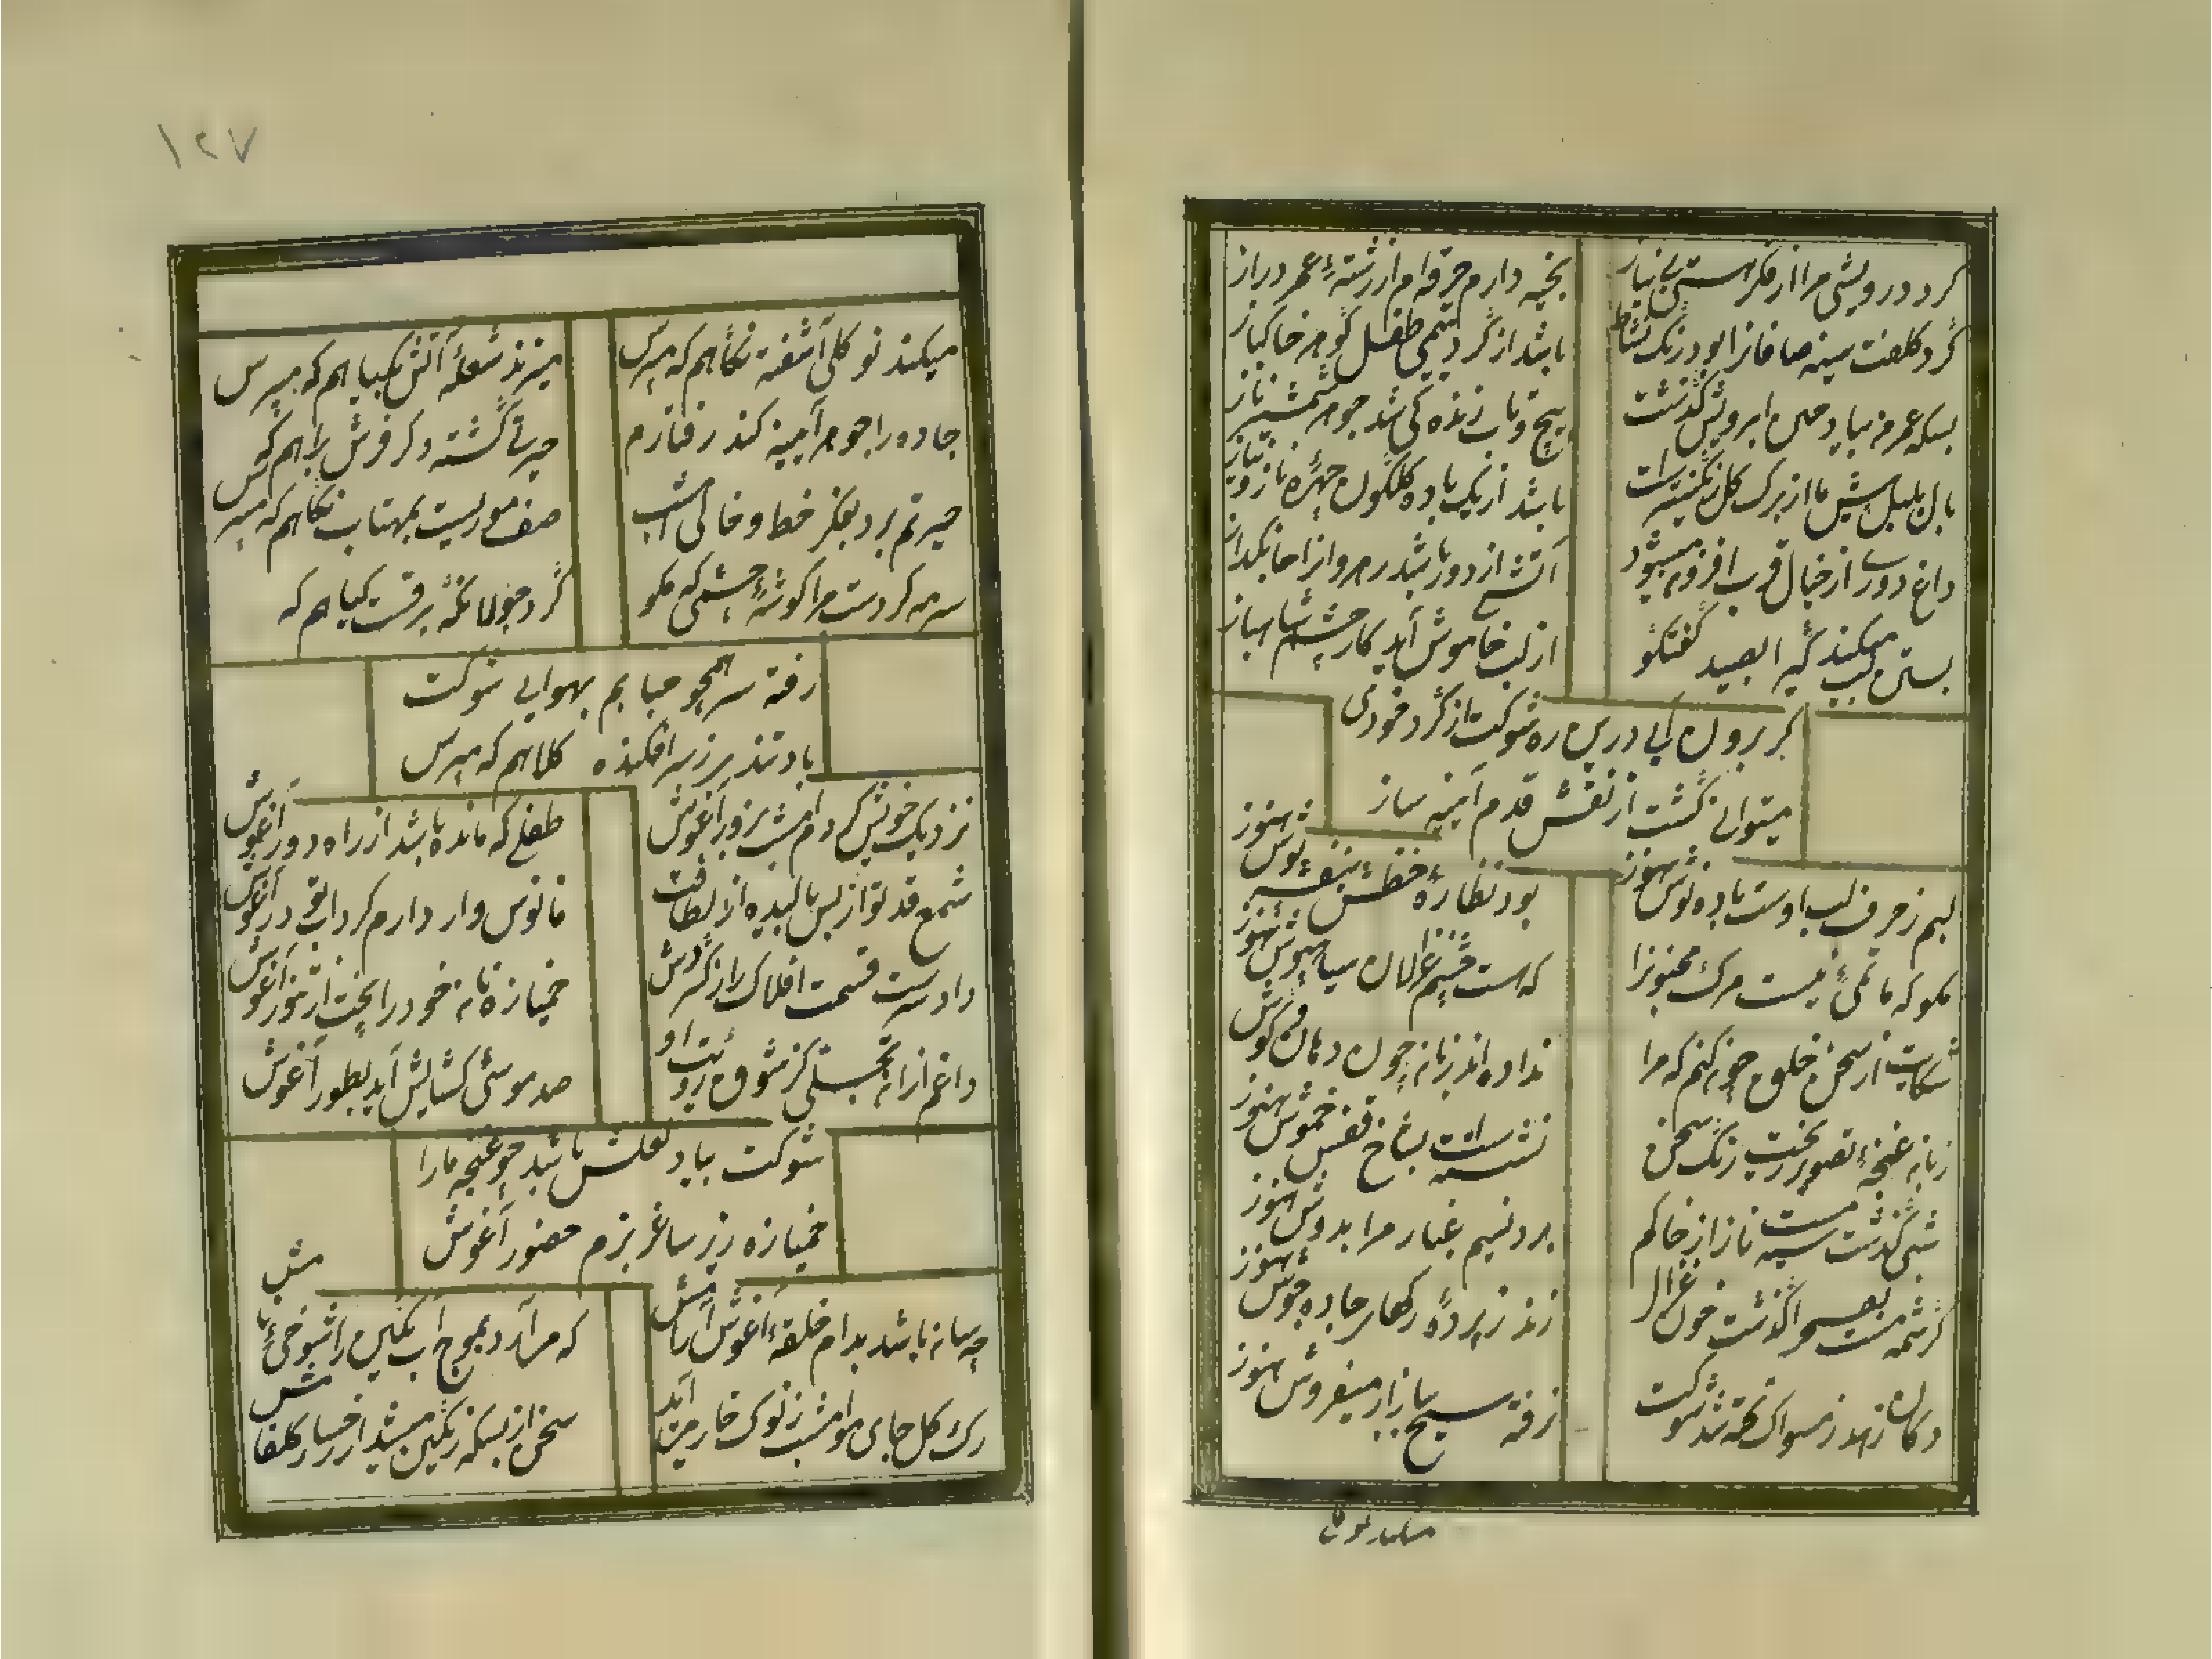 کرد درویشی مرا از فکر هستی بی نیاز
بخیه دارم خرقه ام از رشتهٔ عمر دراز
گرد کلفت سینه صافانرا بود رنگ نشاط
باشد از گرد یتیمی طفل گوهر خاکباز
بسکه عمرم بیاد چین ابرویش گذشت
پیچ و تاب زنده کی شد جوهر شمشیر ناز
بال بلبل پیش ما از برک کل رنگینتر است
باشد از یک باده گلگون چهرهٔ ناز و نیاز
داغ دوری از خیال قرب افزون میشود
آتش از دور باشد رهروانرا جانگداز
بستن لب میکند گیرا بصید گفتگو
از لب خاموش آید کار چشم شاهباز
گر برون آیی درین ره شوکت از گرد خودی
میتوانی گشت از نقش قدم آیینه ساز
لبم ز حرف لب اوست باده نوش هنوز
بود نظارهٔ خطش بنفشه پوش هنوز
مگو که ماتمی نیست مرگ مجنونرا
که هست چشم غزالان سیاه پوش هنوز
شکایت از سخن خلق چون کنم که مرا
نداده اند زبان چون دهان گوش
زبان غنچهٔ تصویر ریخت رنگ سخن
نشسته است بشاخ نفس خموش هنوز
شبی گذشت سیه مست ناز از خاکم
برد نسیم غبار مرا بدوش هنوز
کرشمه مست بصحرا گذشت خون غزال
زند ز پردهٔ رکهای جاده جوش هنوز
دکان زهد ز مسواک تخته شد شوکت
نرفته سبحه ببازار میفروش هنوز
میکند نو کلی
۱۲۷
میکند نو کلی آشفته نگاهم که مپرس
میزند شعله آتش بکیاهم که مپرس
جاده را جوهر آیینه کند رفتارم
حیرتی گشته دکر فرش براهم که مپرس
حیرتم برد بفکر خط و خالی امشب
صف موریست بمهتاب نگاهم که مپرس
سرمه کردست مرا گوشهٔ چشمی که مگو
گرد جولانگه برقست کیاهم که
رفته سر همچو حبابم بهوایی شوکت
باد تند بر ز سر افکنده کلاهم که مپرس
نزدیک خویش کردم امشب بزور آغوش
طفلی که مانده باشد از راه دور آغوش
شمع قد تو از بس بالیده از لطافت
فانوس وار دارم کرداب نور در آغوش
دادست قسمت افلاک را ز گردش
خمیازه نان خود را پخت از تنور آغوش
داغم از آن تجلی کز شوق رویت او
صد موسی کشایش آید بطور آغوش
شوکت بیاد لعلش باشد چو غنچه ما را
خمیازه ریز ساغر بزم حضور آغوش
چه سان باشد بدام حلقهٔ آغوش آرامش
که مرآرد بموج آب نگین را شوخی نامش
رک کل جای مو امشب ز نوک خامه من آید
سخن از بسکه رنگین میشد از رخسار کلفامش